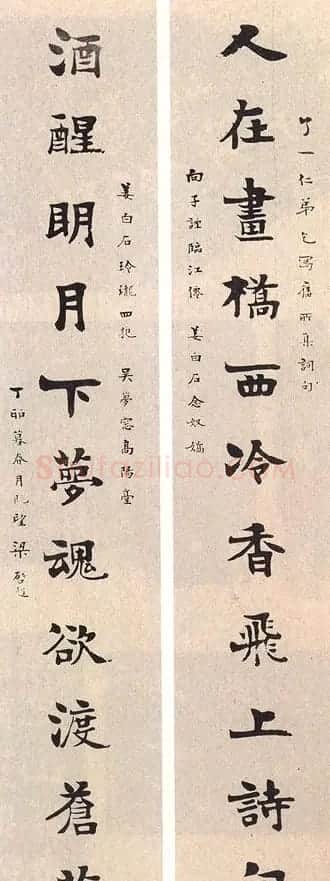 一仁弟乞寫舊所集詞句
人在畫橋西冷香飛上詩
向子諲臨江僊 姜白石念奴嬌
姜白石玲瓏四犯 吳夢窗高陽臺
酒醒眀月下夢魂欲渡蒼
丁卯暮春月既望 梁啟超
Shufaziliao.com